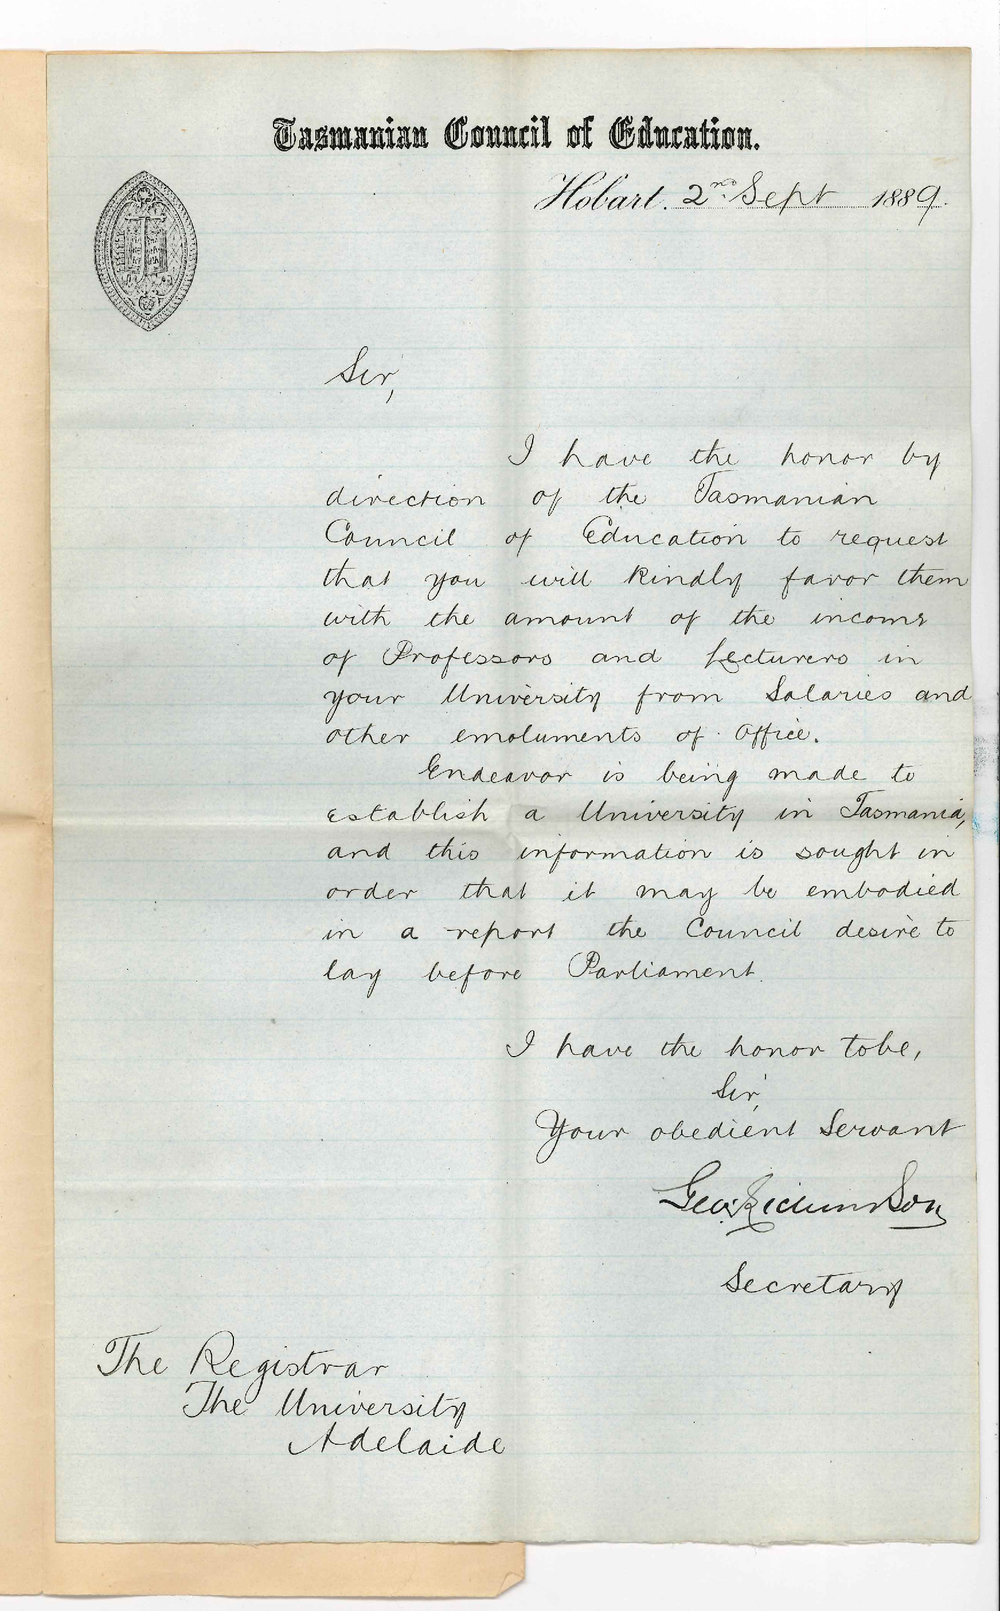 Tasmanian Council of Education.
Hobart. 2nd Sept 1889.
Sir,
I have the honor by
direction of the Tasmanian
Council of Education to request
that you will kindly favor them
with the amount of the income
of Professors and Lecturers in
your University from Salaries and
other emoluments of Office.
Endeavor is being made to
establish a University in Tasmania,
and this information is sought in
order that it may be embodied
in a report the Council desire to
lay before Parliament.
I have the honor to be,
Sir,
Your obedient Servant
Geo.
Secretary
The Registrar
The University
Adelaide